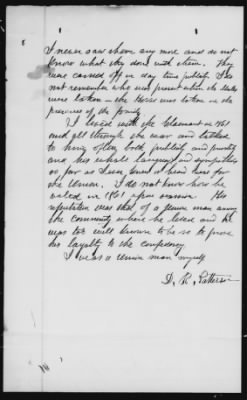 8
I never saw them any more and do not
know what they done with them. They
were carried off in day time publicly I do
not remember who was present when the
were taken – the Horse was taken in the
presence of the family
I lived with the Claimant in 1861
and all through the war and talked
to him often both publicly and privately
and his whole language and sympathies
so far as I ever knew or heard were for
the Union. I do not know how he
voted in 1861 upon secession. His
reputation was that of a Union man among
the community where he lived and he
was too well known to be so to prove
his loyalty to the confederacy.
I was a Union man myself
D. R. Patterson